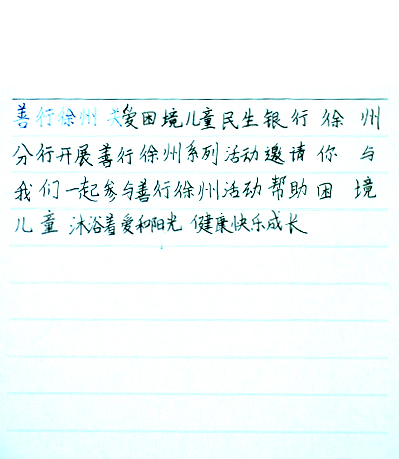 善行徐州 关爱困境儿童民生银行徐州
分行开展善行徐州系列活动邀请你与
我们一起参与善行徐州活动帮助困境
儿童 沐浴着爱和阳光 健康快乐成长